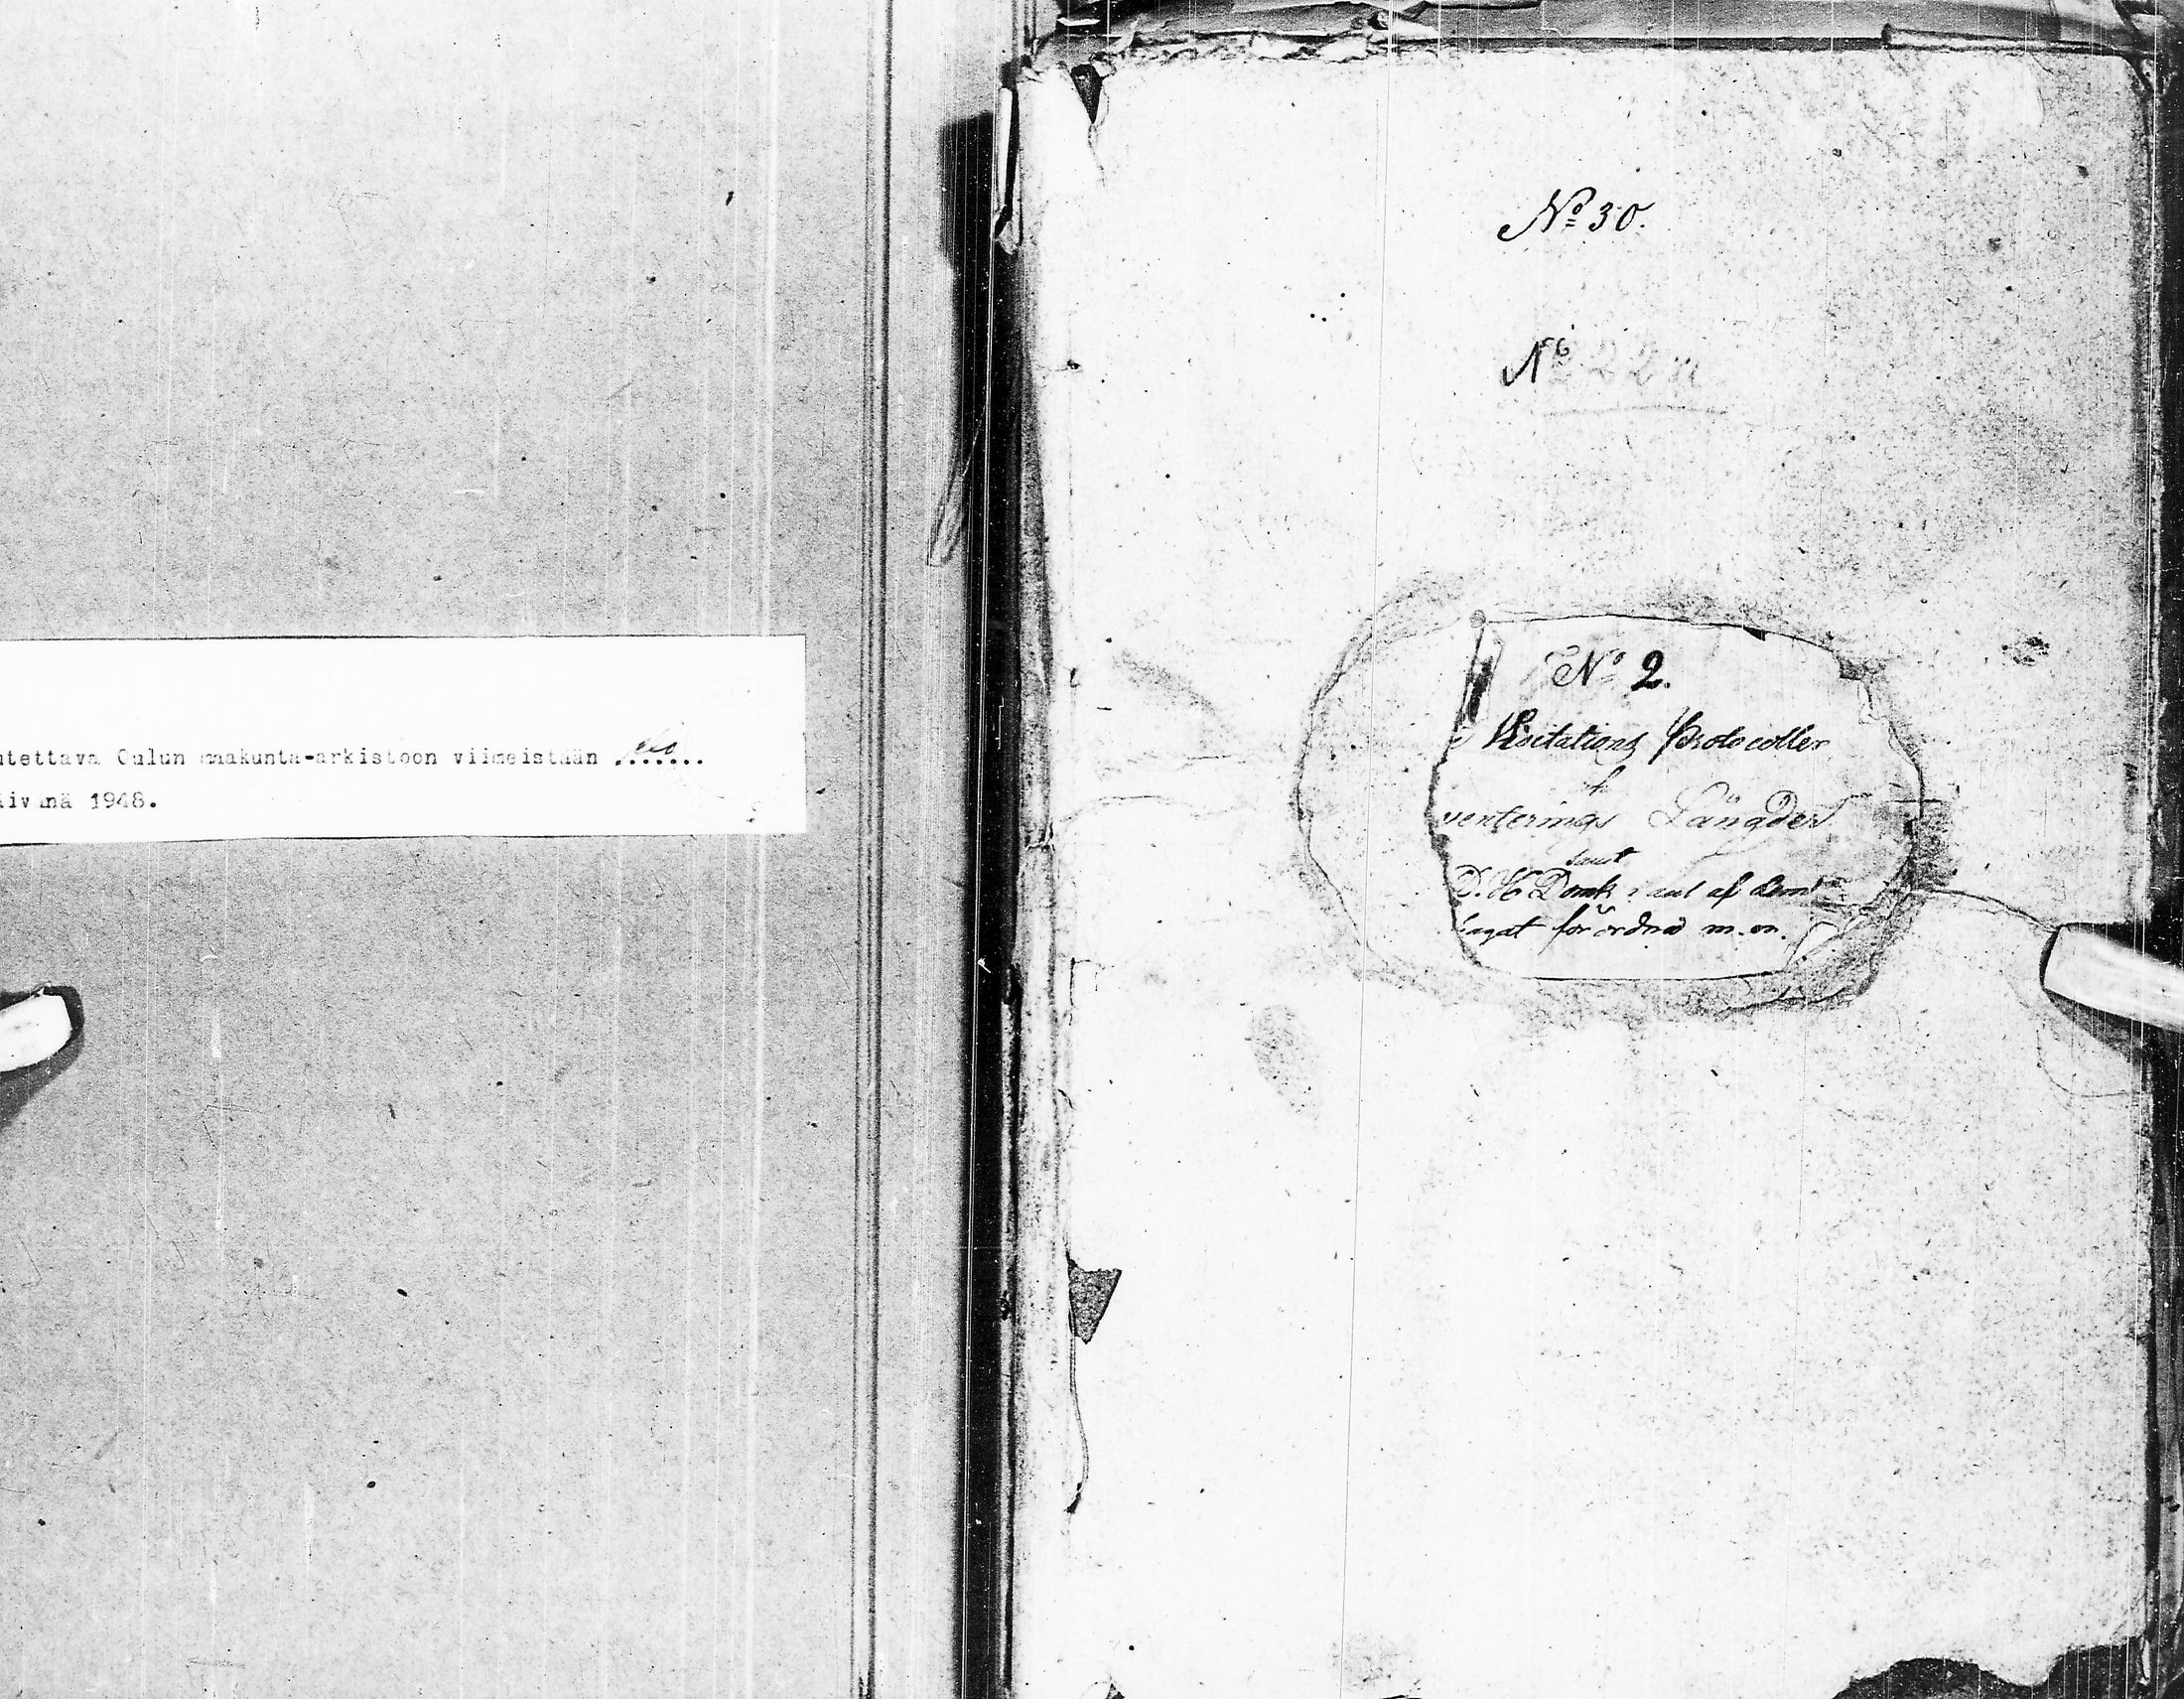 utettava Oulun maakunta-arkistoon viimeistään .......
äivänä 1948.
No 30.
No
No 2.
Visitations Protocoller
venterings Längder
samt
D. H Domk af
lagat förordnad m. m.